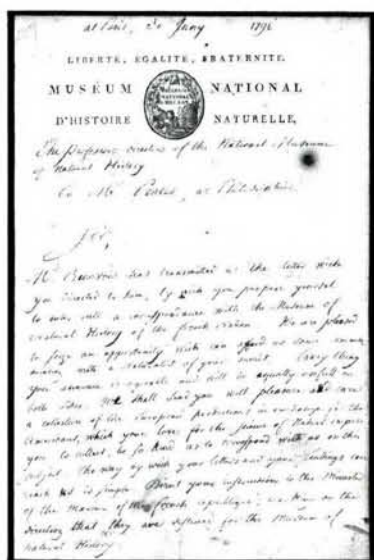 at Paris, 30 Juny 1796
LIBERTÉ, ÉGALITÉ, FRATERNITÉ.
MUSÉUM NATIONAL
D'HISTOIRE NATURELLE,
The professors of the National Museum
of Natural History
to Mr Peale, at Philadelphia
Sir,
Mr Beauvois has transmitted us the letter wich
you directed to him, by wich you propose yourself
to us a correspondance with the Museum of
natural History of the french nation. We are pleased
to an opportunity wich can afford us some
with a naturalist of your merit. Every thing
you is agreable and will be equally usefull on
both sides. We shall send you with pleasure and care
a collection of the European productions in exchange for the
American, which your love for the science of Nature
you to collect. be so kind as to correspond with us on this
subject. The way by wich your letters and your sendings can
reach us is simple. Direct your to the Minister
of the of the french republique, on the
directory that they are for the Museum of
natural History